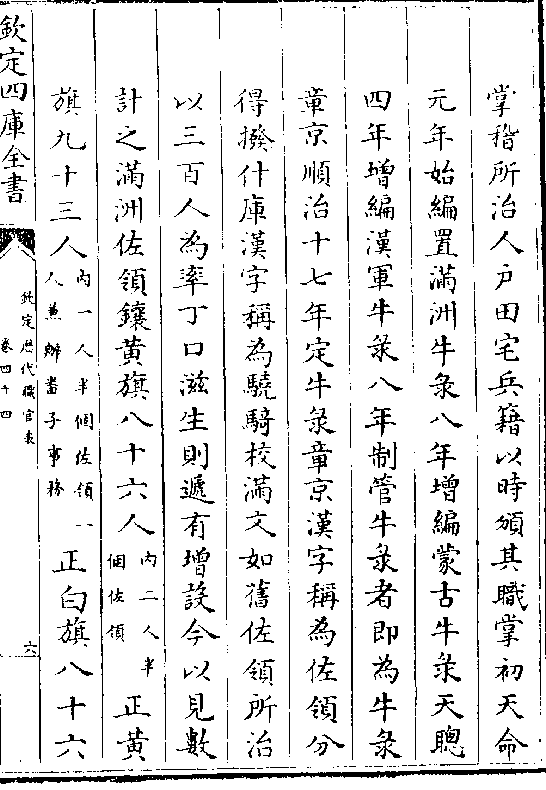 掌稽所治人戶田宅兵籍以時頒其職掌初天命
元年始編置滿洲牛彔八年增編蒙古牛彔天聰
四年增編漢軍牛彔八年制管牛彔者即為牛彔
章京順治十七年定牛彔章京漢字稱為佐領分
得撥什庫漢字稱為驍騎校滿文如舊佐領所治
以三百人為率丁口滋生則遞有增設今以見數
計之滿洲佐領鑲黃旗八十六人內二人半個佐領正黃
旗九十三人內一人半個佐領一人兼辦畨子事務正白旗八十六
欽定四庫全書
欽定歷代職官表
卷四十四
六